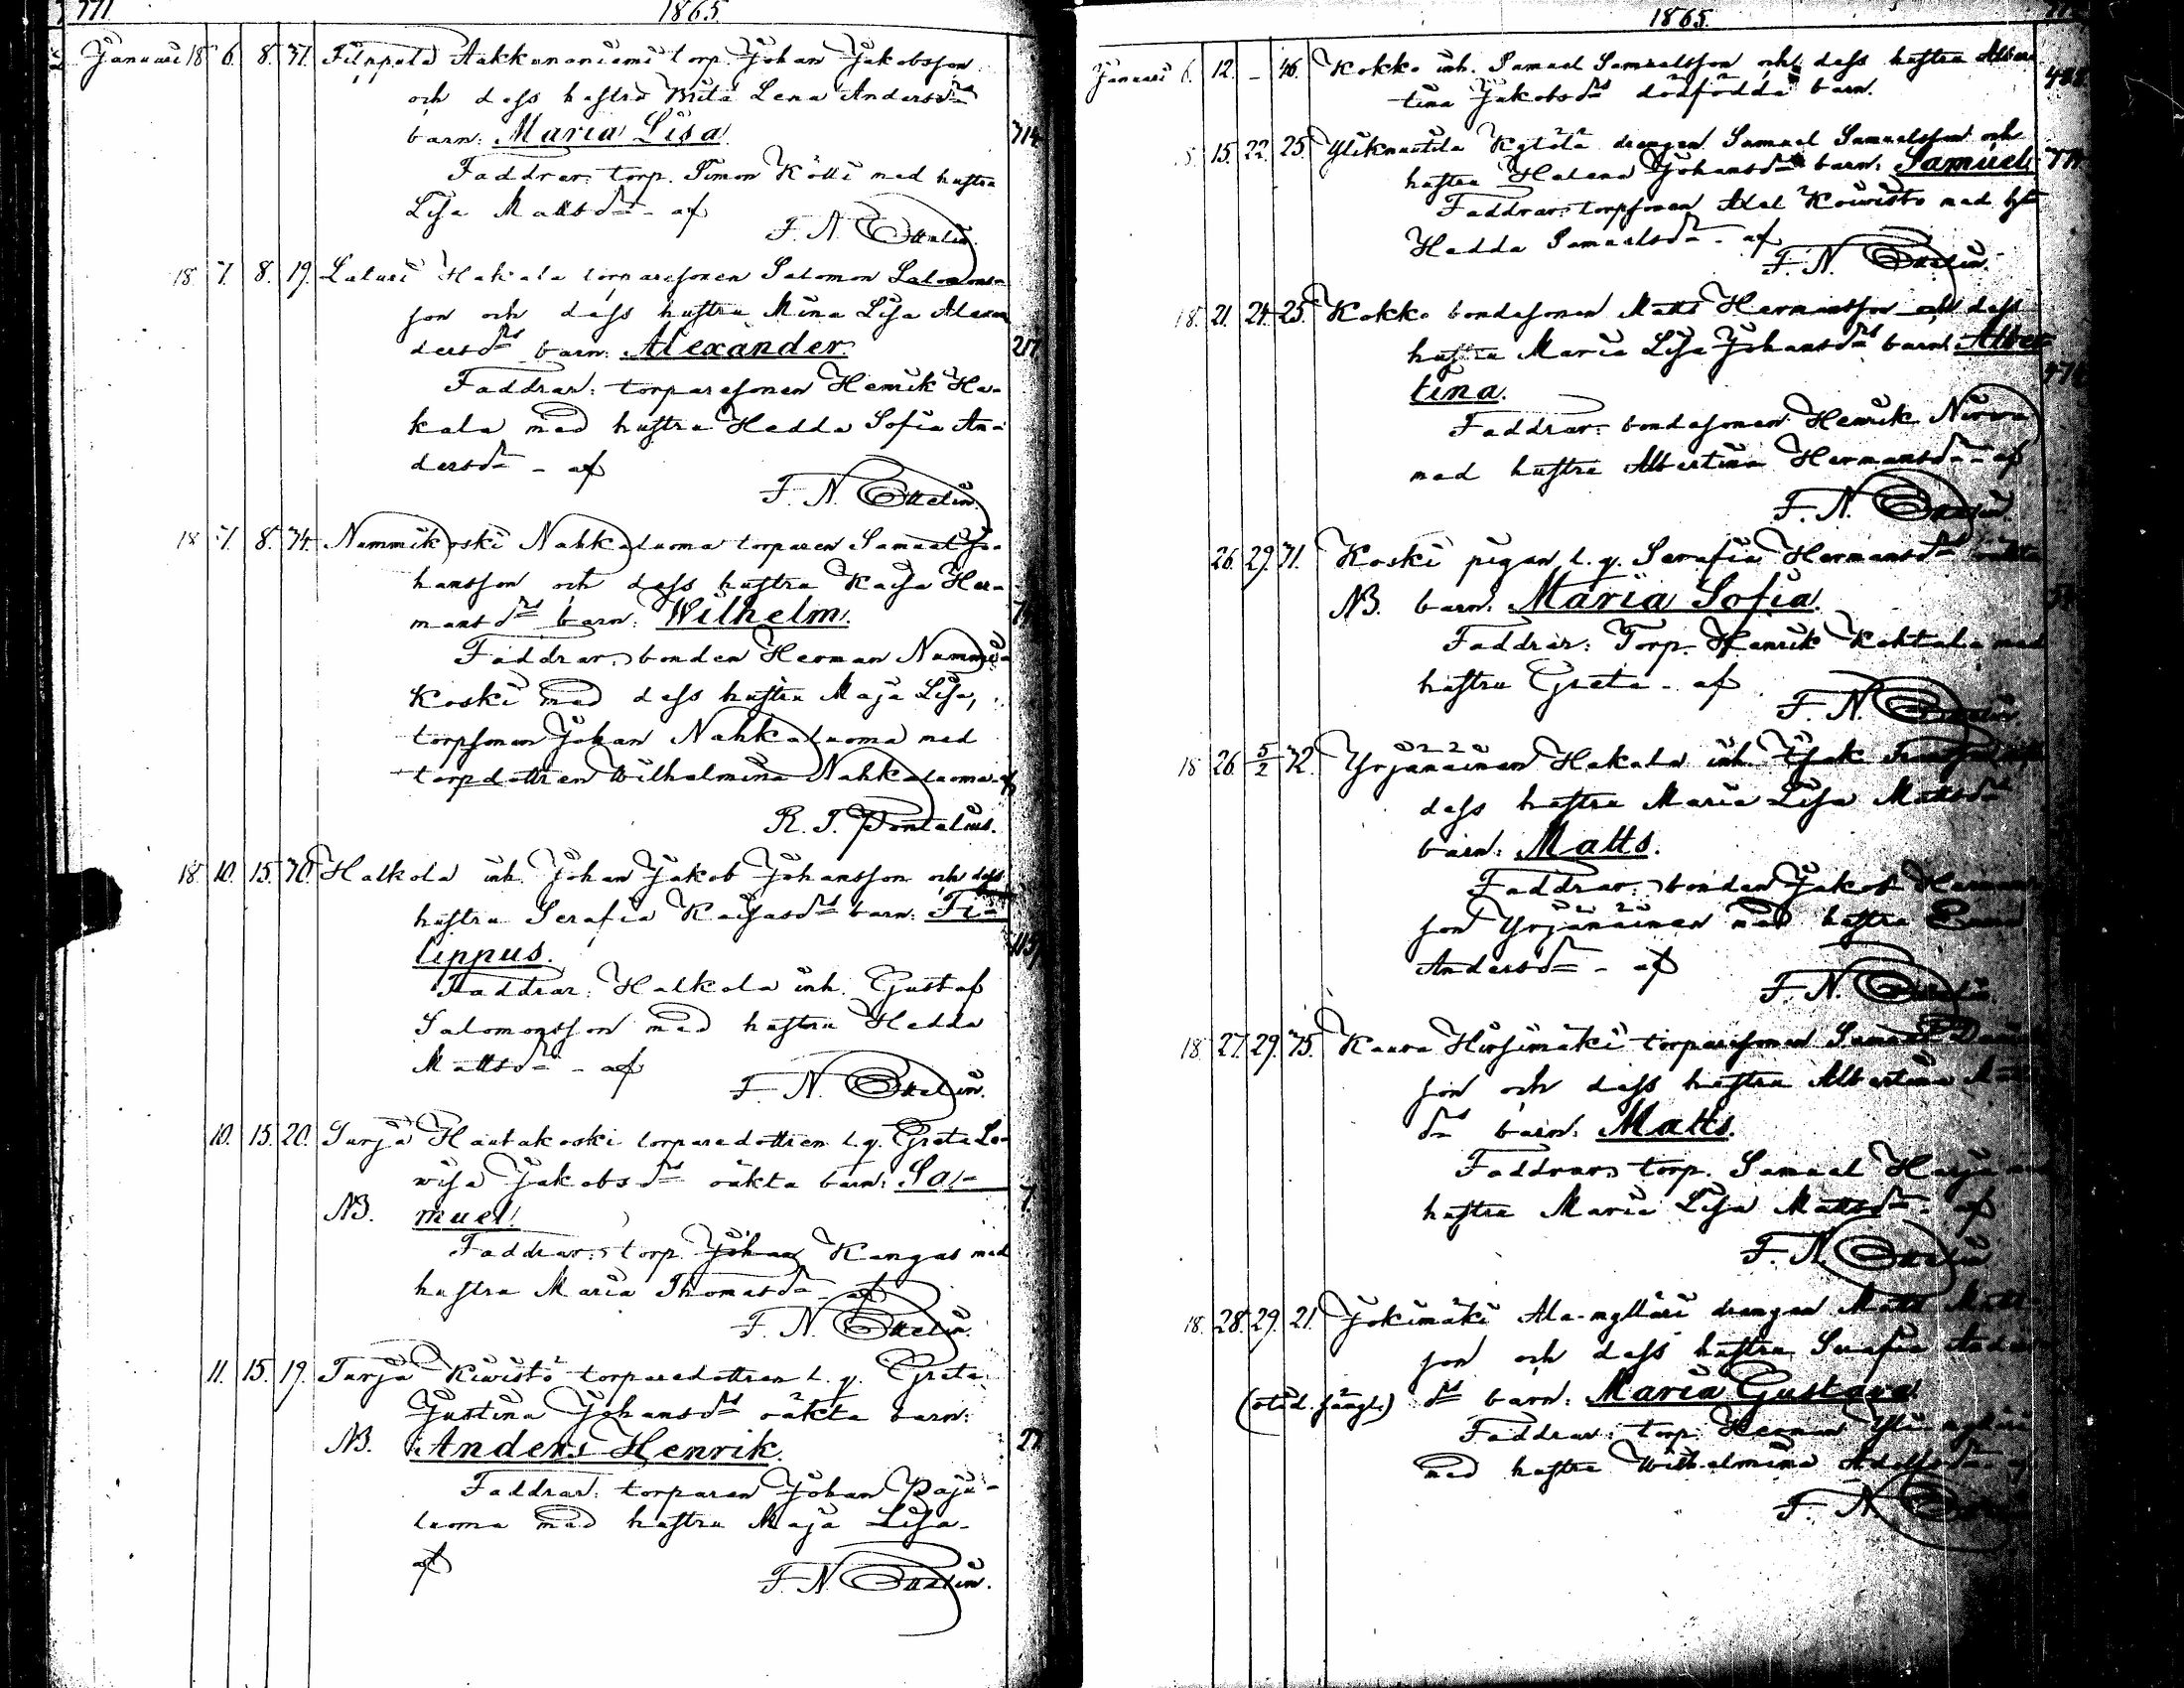 771
1865.
Januari 18 6. 8. 37. Filppula Aakkunaniemi torp. Johan Jakobsson
och dess hustru Brita Lena Andersdrs
barn: Maria Lisa. 714
Faddrar: torp. Simon Kötti med hustru
Lisa Mattsdr - af
F. N.
18. 7. 8. 19. Laturi Hakala torparesonen Salomon Salomons-
son och dess hustru Mina Lisa Alexan
dersdrs barn: Alexander. 217
Faddrar: torparesonen Henrik Ha-
kala med hustru Hedda Sofia An-
dersdr - af
F. N.
18 7. 8. 74. Nummikoski Nahkaluoma torparen Samuel Jo-
hansson och dess hustru Kaisa Her-
mansdrs barn: Wilhelm.
Faddrar: bonden Herman Nummi-
koski med dess hustru Maja Lisa,
torpsonen Johan Nahkaluoma med
torpdottren Wilhelmina Nahkaluoma - af
R. J. Pontelius.
18. 10. 15. 70. Halkola inh. Johan Jakob Johansson och dess
hustru Serafia Kaisasdrs barn: Fi-
lippus.
Faddrar: Halkola inh. Gustaf
Salomonsson med hustru Hedda
Mattsdr - af
F. N.
10. 15. 20. Turja Hautakoski torparedottren l. q. Greta Lo-
wisa Jakobsdrs oäkta barn: Sa-
NB. muel. 7.
Faddrar: torp. Johan Kangas med
hustru Maria Thomasdr - af
F. N.
11. 15. 19. Turja Kiwistö torparedottren l. q. Greta
Gustina Johansdrs oäkta barn:
NB. Anders Henrik. 27
Faddrar: torparen Johan Paju-
luoma med hustru Maja Lisa -
af
F. N.
1865.
Januari 6. 12. - 46. Kokko inh. Samuel Samuelsson och dess hustru Alber
tina Jakobsdrs dödfödda barn.
15. 22. 25. Yliknuutila Kytölä drengen Samuel Samuelsson och
hustru Helena Johansdrs barn: Samuel.
Faddrar: torpsonen Axel Kowisto med hst
Hedda Samuelsdr - af
F. N.
18. 21. 24. 25. Kokko bondesonen Matts Hermansson och dess
hustru Maria Lisa Johansdrs barn: Alber
tina.
Faddrar: bondesonen Henrik Nirva
med hustru Albertina Hermansdr - af
F. N.
26. 29. 71. Koski pigan l. q. Serafia Hermansdrs oäkta
NB. barn: Maria Sofia.
Faddrar: Torp. Henrik Kohtala med
hustru Greta - af
F. N.
18 26. 5/2 72. Yrjänäinen Hakala inh. Isak
dess hustru Maria Lisa Mattsdrs
barn: Matts.
Faddrar: bonden Jakob Hermans
son Yrjänäinen med hustru
Andersdr - af
F. N.
18 27. 29. 75. Kaura Hirsimäki torparesonen Samuel
son och dess hustru Albertina
drs barn: Matts.
Faddrar: torp. Samuel Harju
hustru Maria Lisa Mattsdr - af
F. N.
18. 28. 29. 21. Jokimäki Ala-mylläri drengen Matts Matts
son och dess hustru Serafia Anders
drs barn: Maria Gustava
Faddrar: torp. Herman Yli-mylläri
med hustru Wilhelmina Adolfsdr af
F. N.